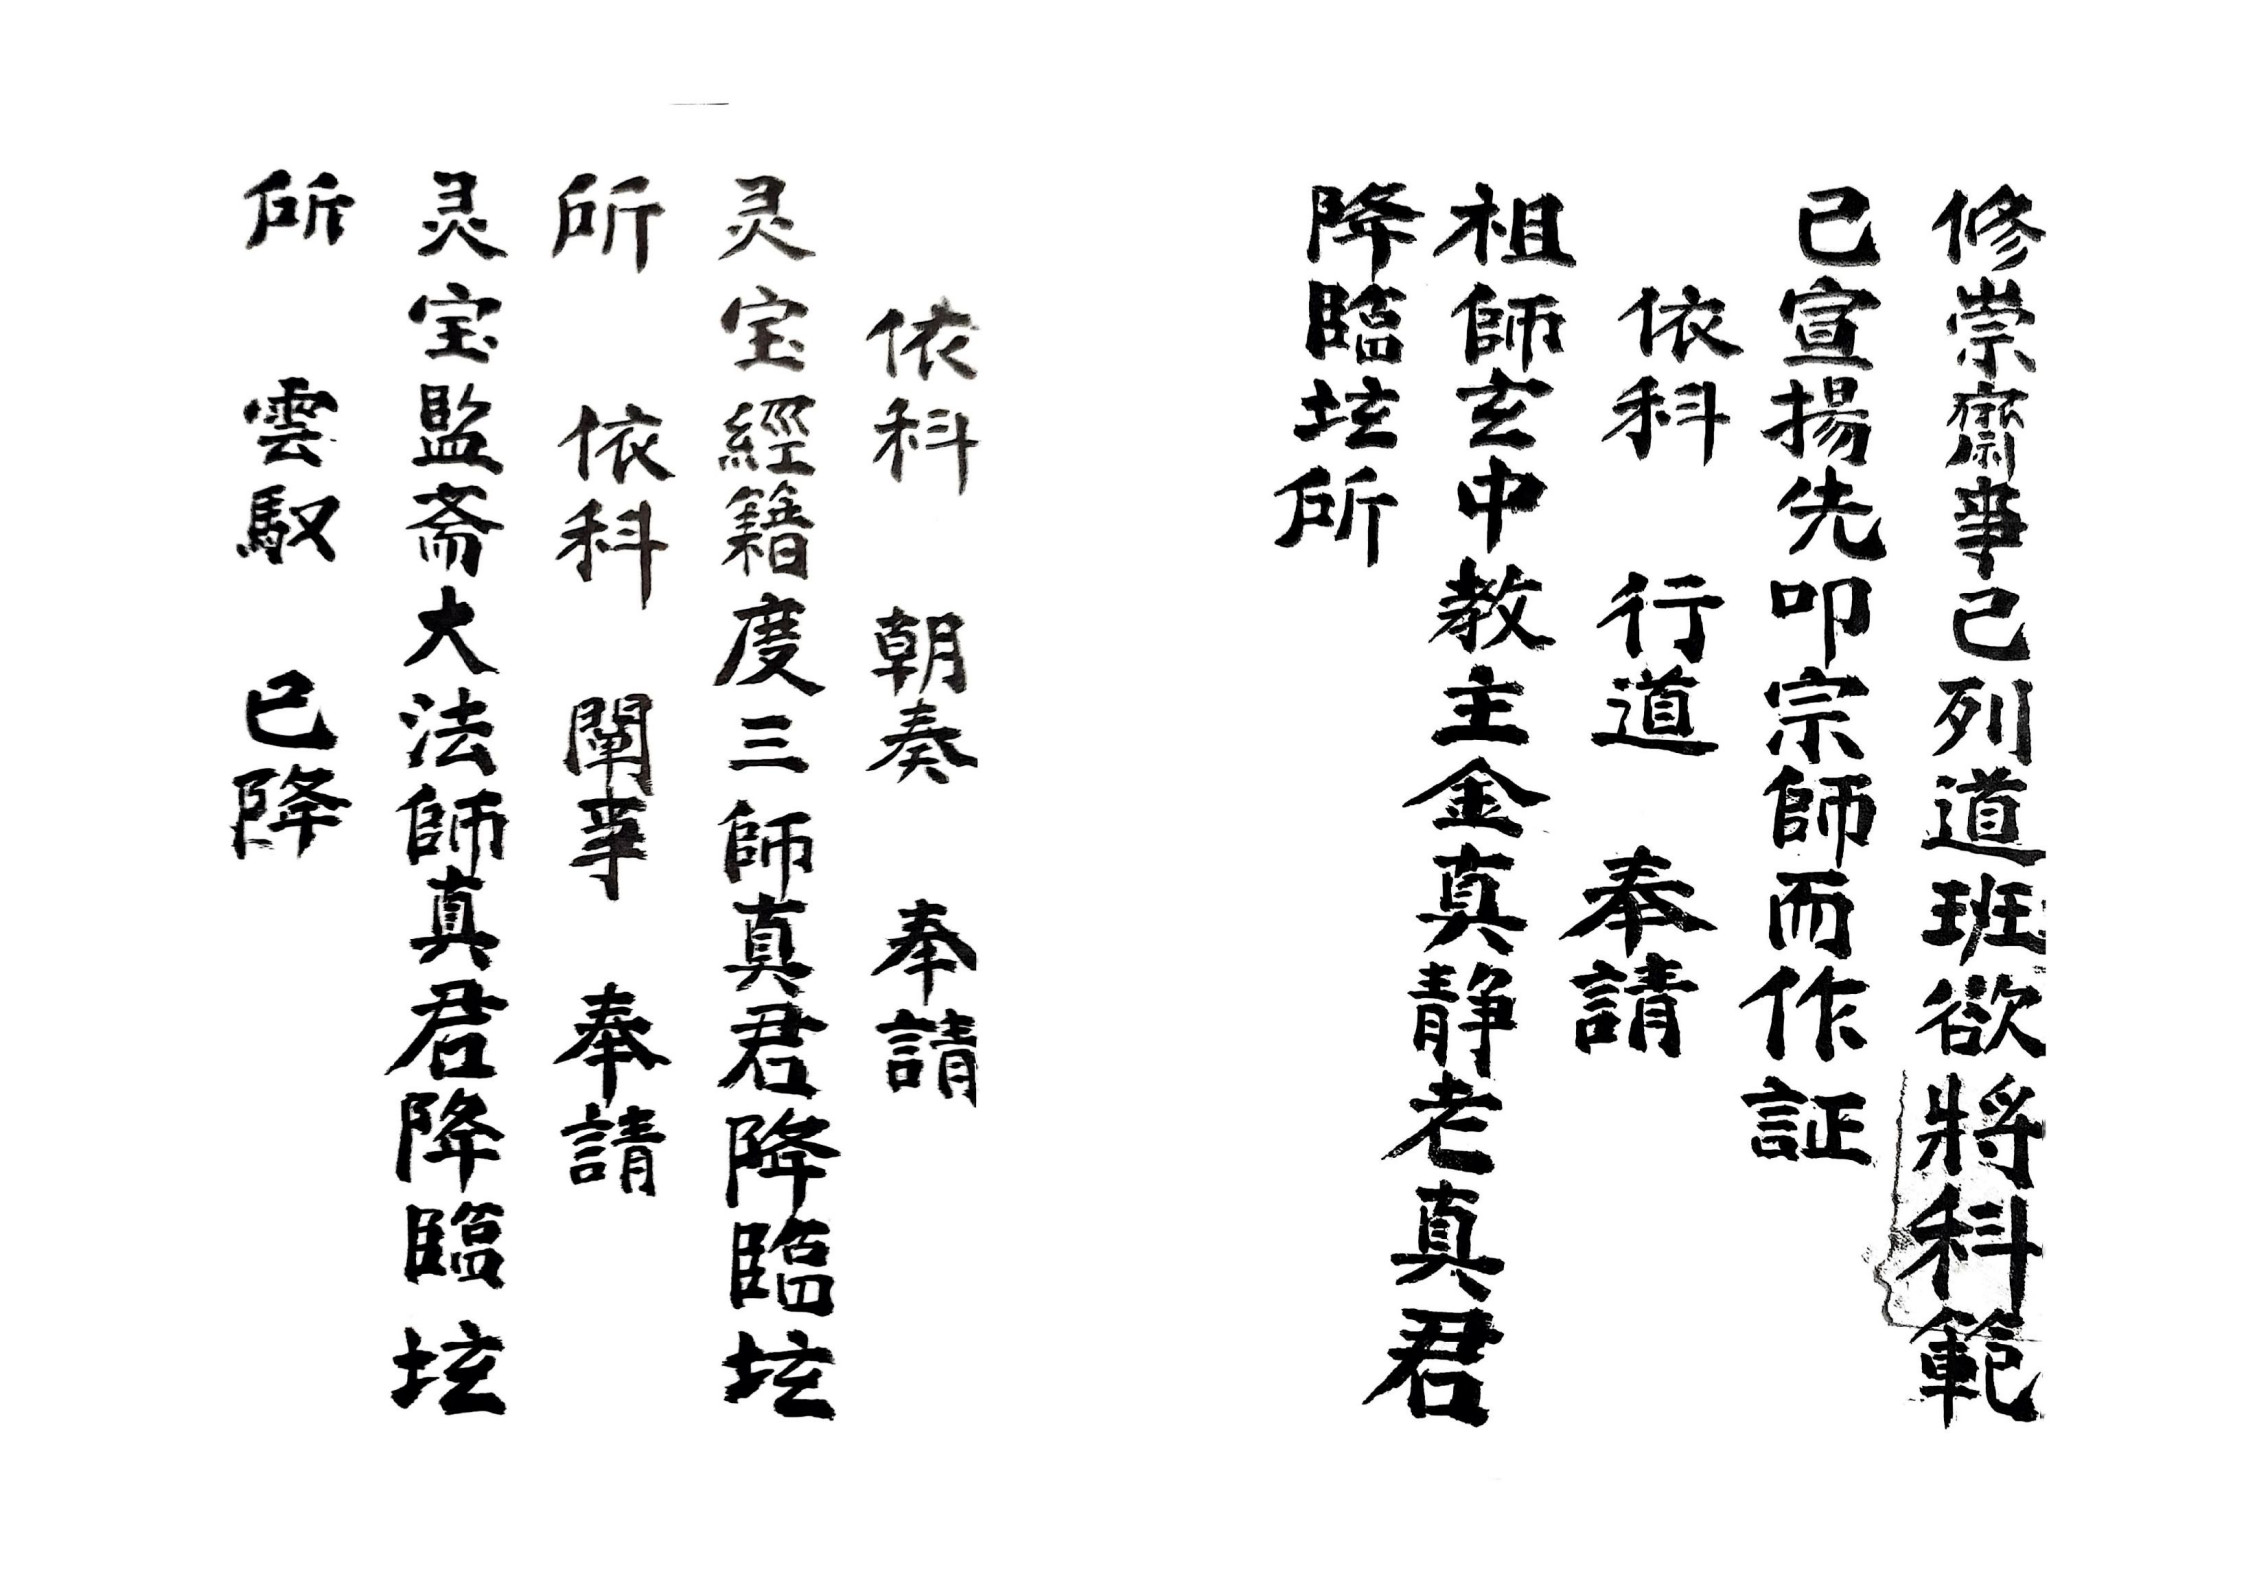 修崇齋事已列道班欲將科範
已宣揚先叩宗師而作証
依科 行道 奉請
祖師玄中教主金真静老真君
降臨坛所
依科 朝奏 奉請
灵宝經籍度三師真君降臨坛
所 依科 闡事 奉請
灵宝監斋大法師真君降臨坛
所 雲馭 已降